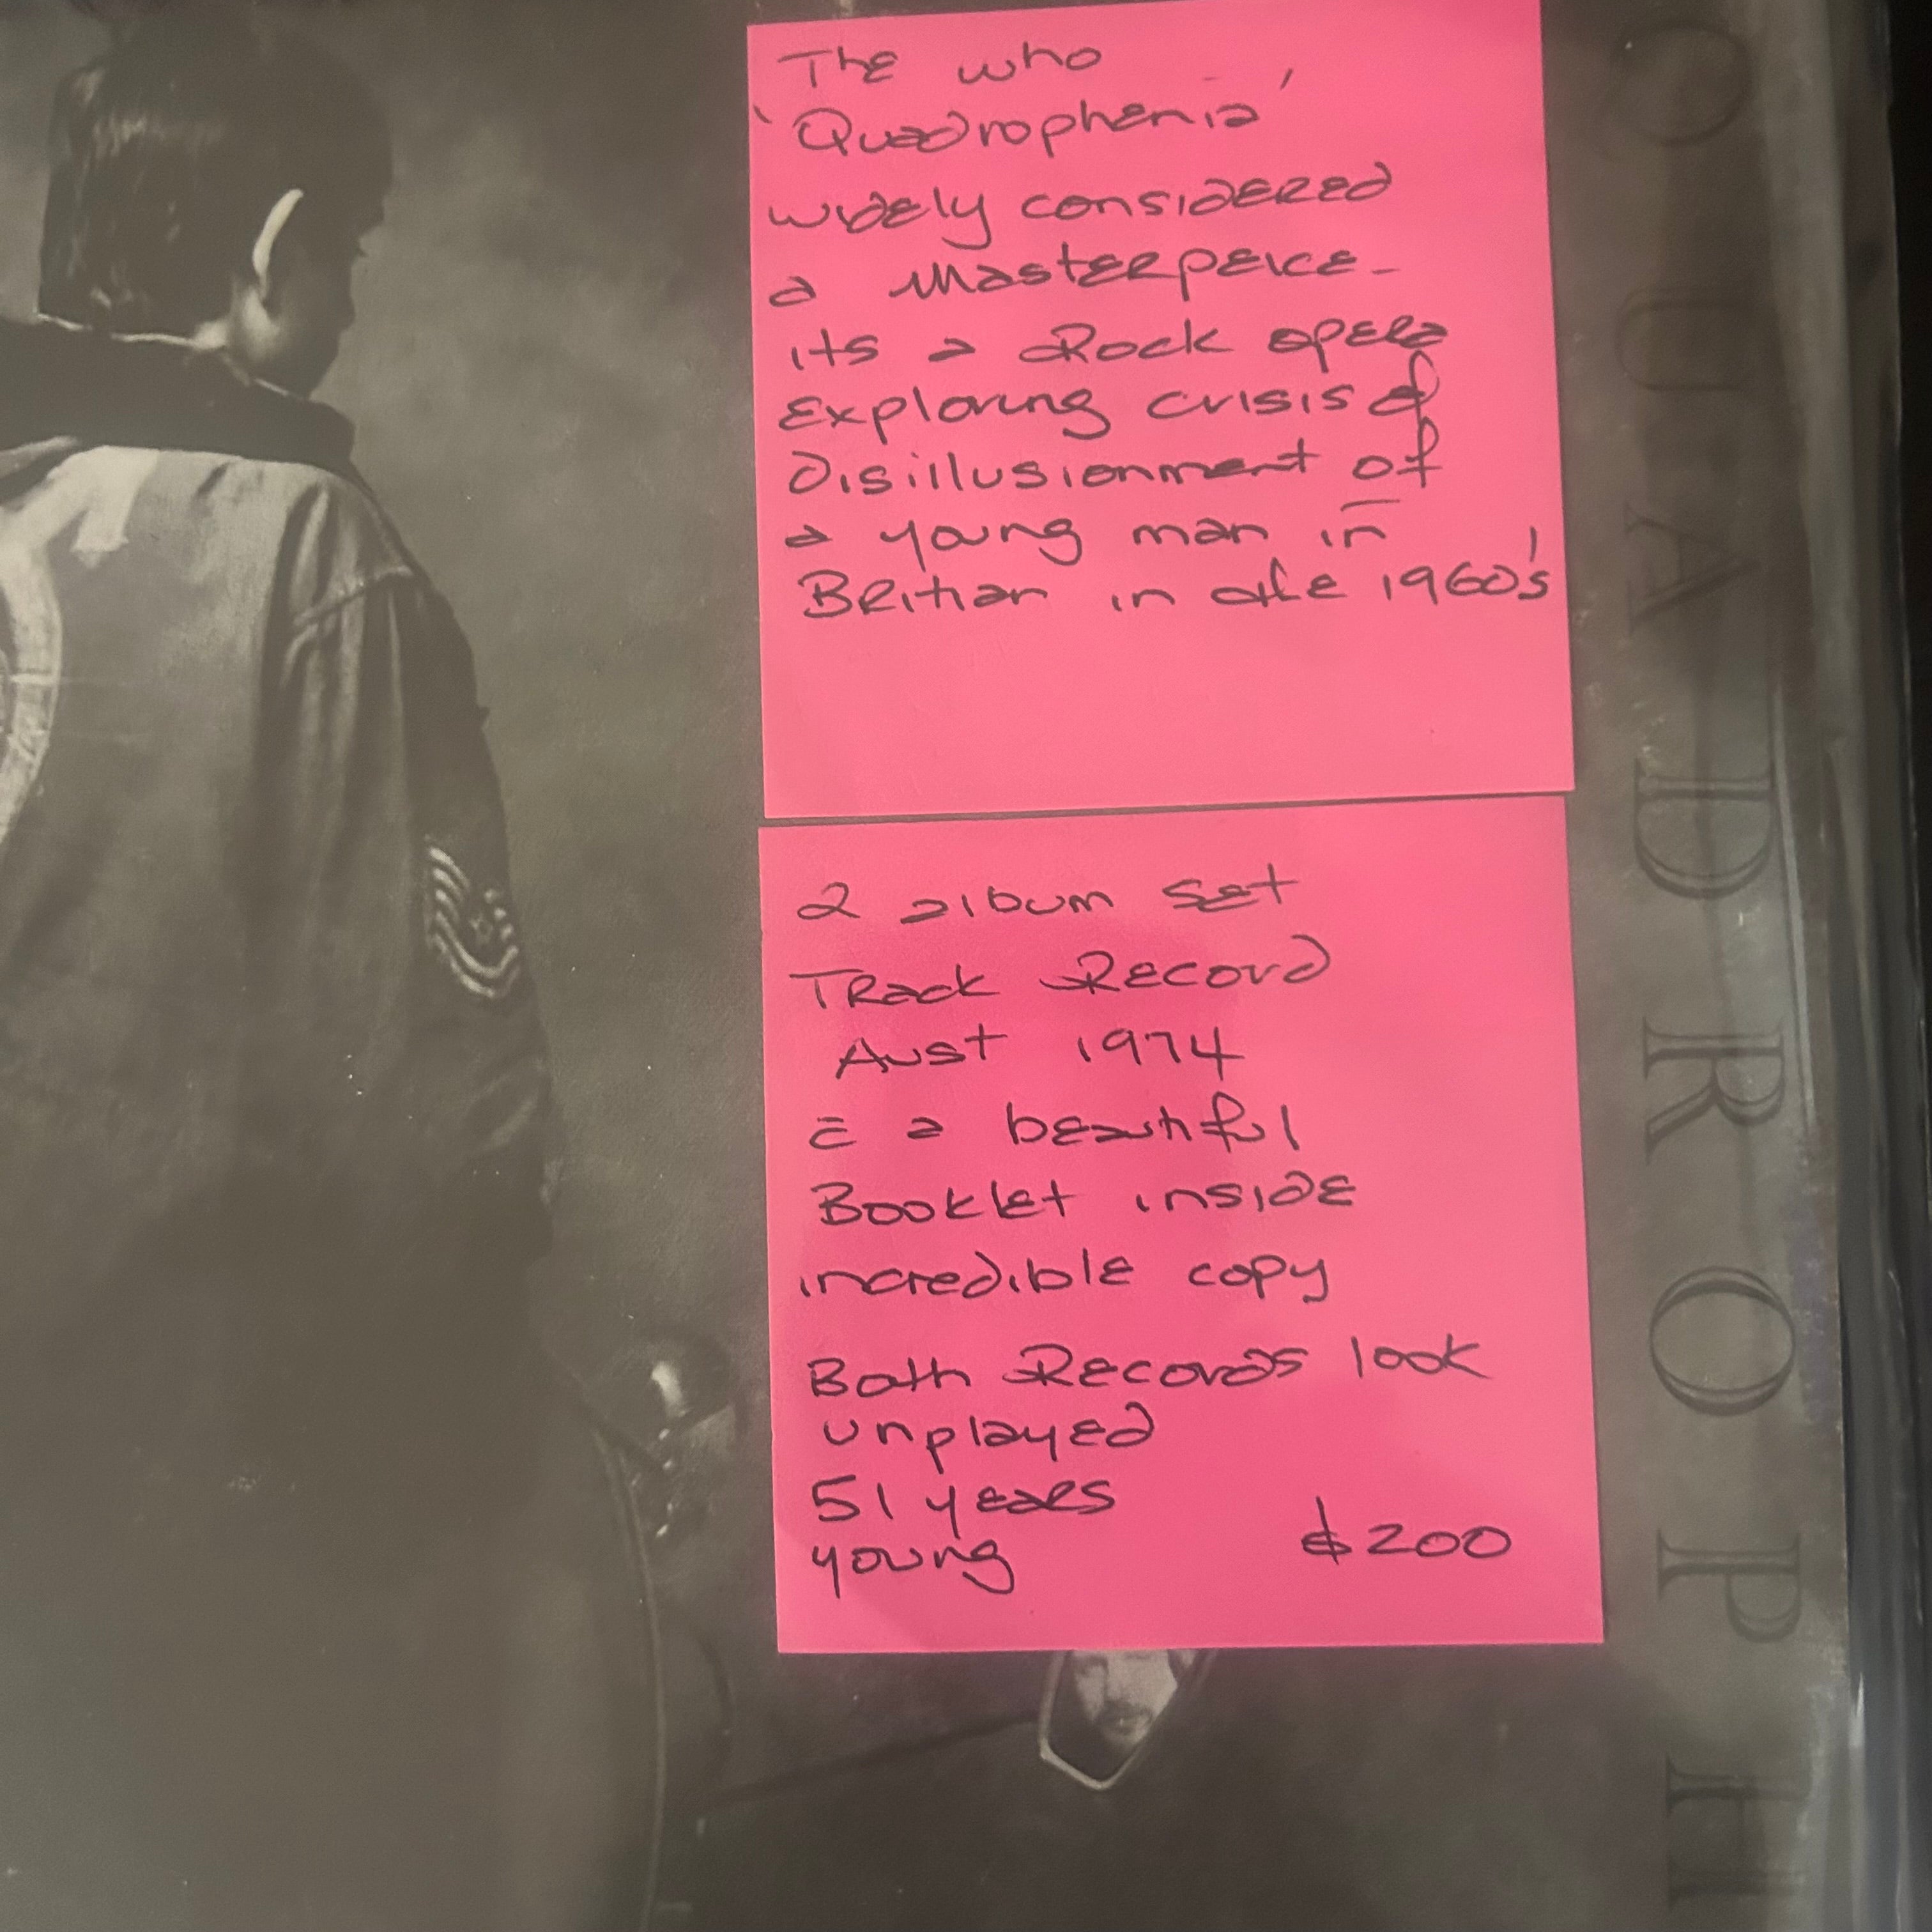 The who
'Quadrophenia'
widely considered
a Masterpeice -
its a Rock opera
Exploring crisis of
Disillusionment of
a young man in
Britian in the 1960's
2 album set
Track Record
Aust 1974
c̄ a beautiful
Booklet inside
incredible copy
Both Records look
unplayed
51 years
young $200
QUADROPH